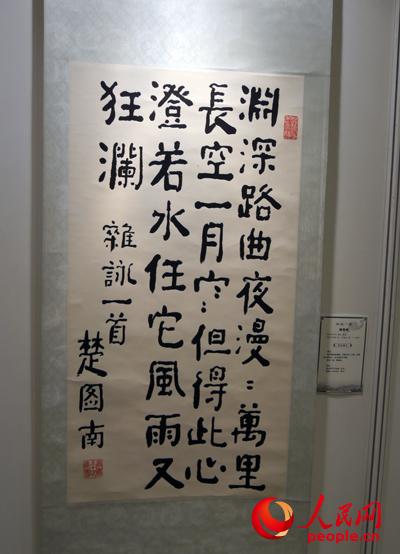 渊深路曲夜漫ミ萬里
長空一月宀ミ但得此心
澄若水任它風雨又
狂瀾
雜詠一首
楚图南
人民网
people.cn